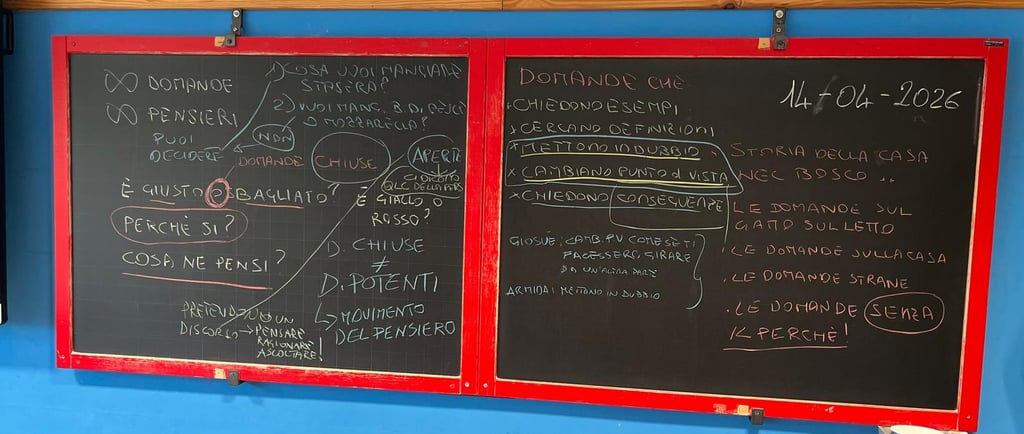 ∞ DOMANDE
∞ PENSIERI
PUOI
DECIDERE
NON
1) COSA VUOI MANGIARE
STASERA?
2) VUOI MANG. B. DI PESCE
O MOZZARELLA?
DOMANDE CHIUSE
APERTE
CI DICONO
QLC DELLA PERS
È GIUSTO O SBAGLIATO?
È GIALLO O
ROSSO?
PERCHÈ SI?
COSA NE PENSI?
D. CHIUSE
≠
D. POTENTI
↳ MOVIMENTO
DEL PENSIERO
PRETENDONO UN
DISCORSO → PENSARE
RAGIONARE
ASCOLTARE!
DOMANDE CHE
CHIEDONO ESEMPI
CERCANO DEFINIZIONI
METTONO IN DUBBIO
CAMBIANO PUNTO di VISTA
CHIEDONO CONSEGUENZE
GIOSUÈ: CAMB. PV COME SE TI
FACESSERO GIRARE
DA UN'ALTRA PARTE
ARMIDA: METTONO IN DUBBIO
14-04-2026
STORIA DELLA CASA
NEL BOSCO ..
. LE DOMANDE SUL
GATTO SUL LETTO
. LE DOMANDE SULLA CASA
. LE DOMANDE STRANE
. LE DOMANDE SENZA
IL PERCHÈ!